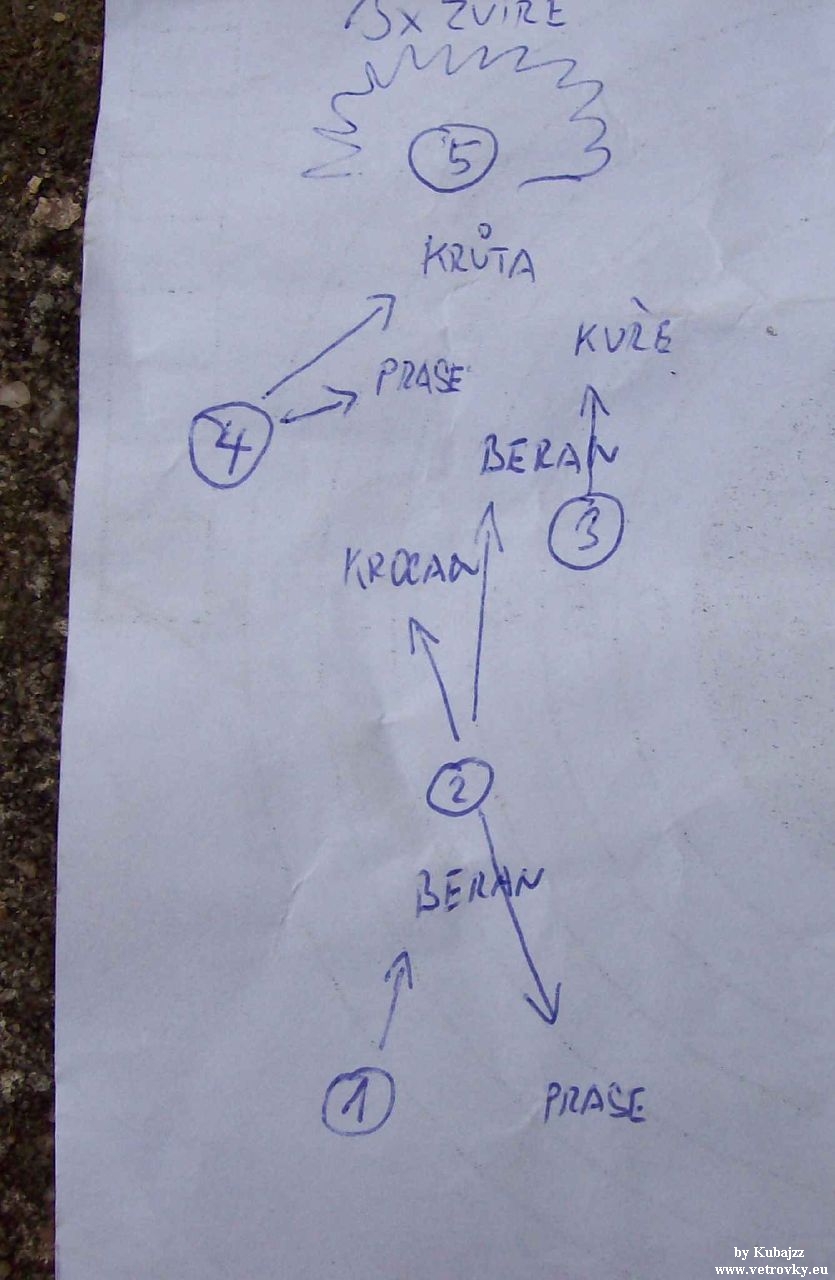 3x ZVÍŘE
5
KRŮTA
KUŘE
PRASE
4
BERAN
3
KROCAN
2
BERAN
1
PRASE
by Kubajzz
www.vetrovky.eu